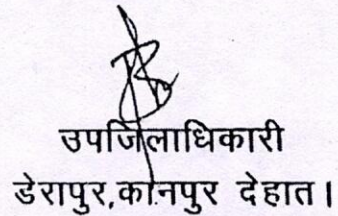 उपजिलाधिकारी
डेरापुर,कानपुर देहात।